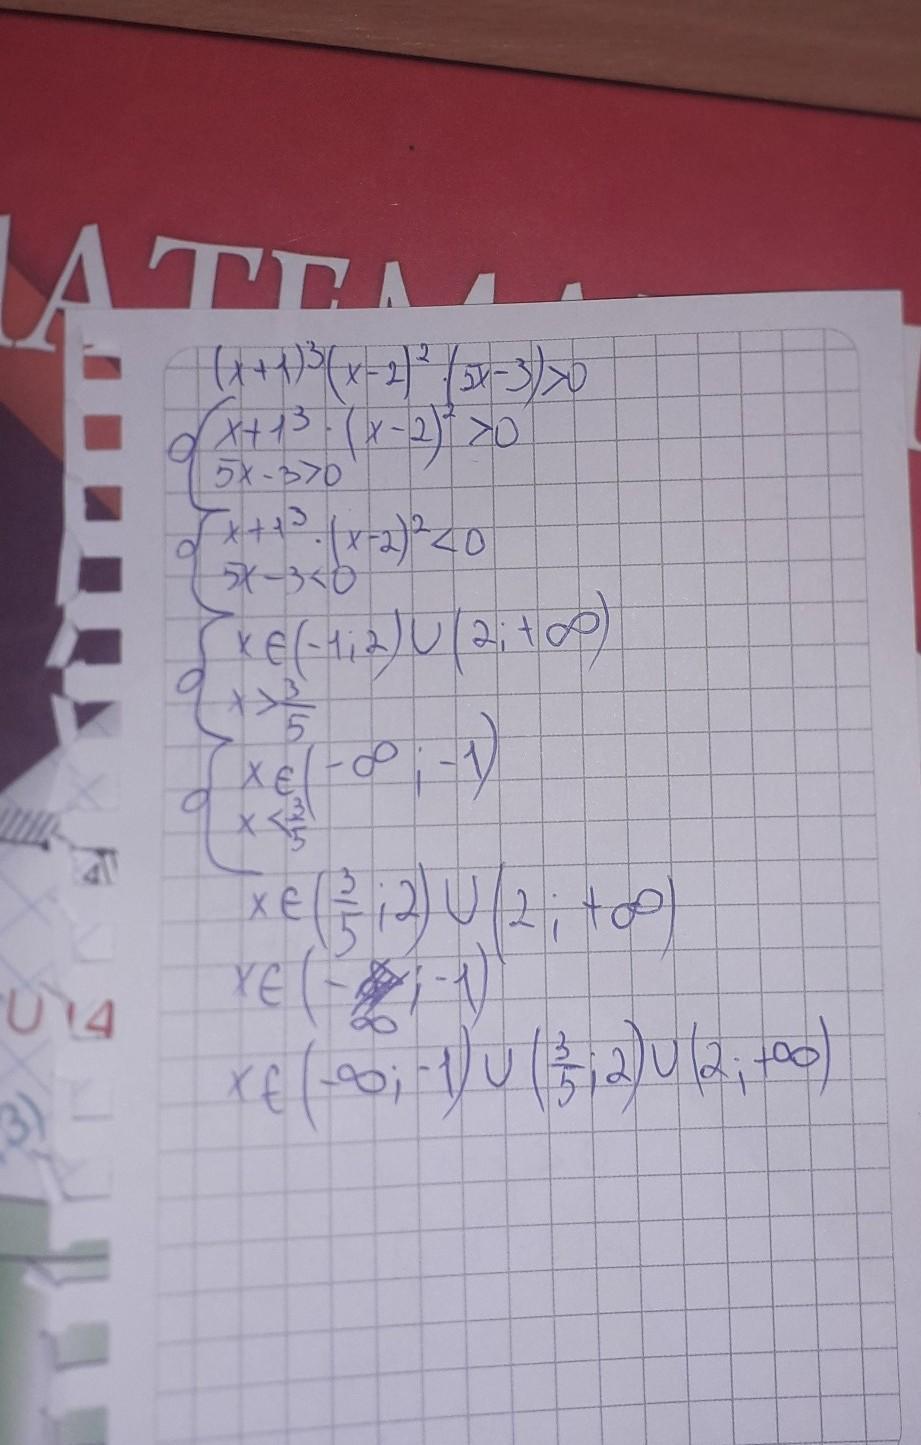 МАТЕМА
(x+1)³(x-2)²·(5x-3)>0
x+1³·(x-2)²>0
5x-3>0
x+1³·(x-2)²<0
5x-3<0
x∈(-1;2)∪(2;+∞)
x>3/5
x∈(-∞;-1)
x<3/5
x∈(3/5;2)∪(2;+∞)
x∈(-∞;-1)
x∈(-∞;-1)∪(3/5;2)∪(2;+∞)
3)